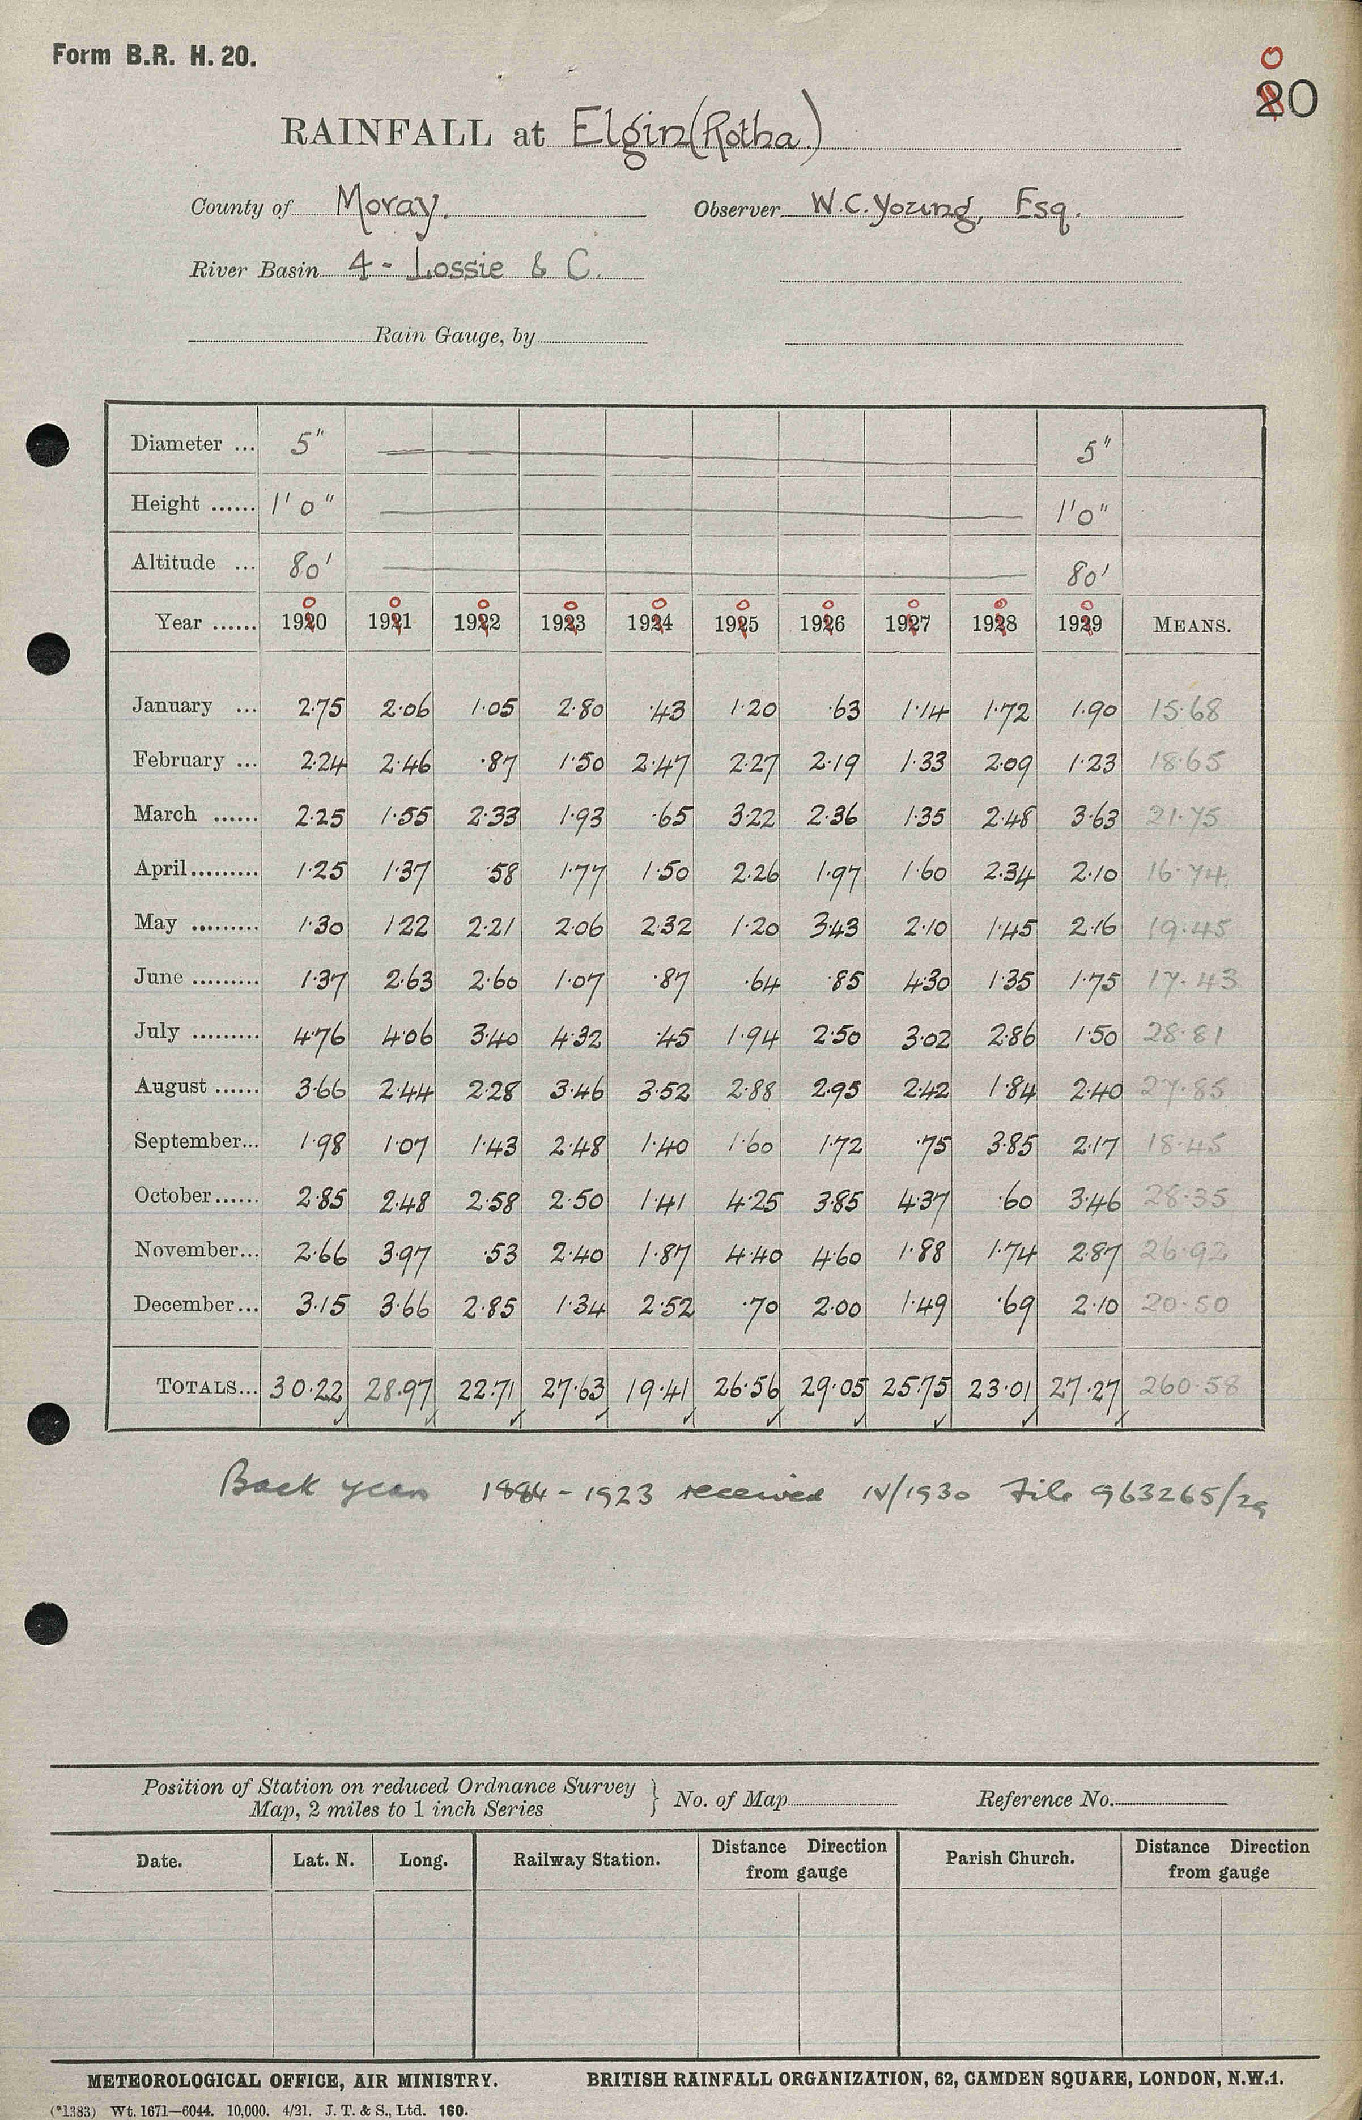 Form B.R. H. 20.
0
20
RAINFALL at Elgin (Rotha.)
County of Moray. Observer W.C. Young, Esq.
River Basin 4 - Lossie & C.
Rain Gauge, by
Diameter ... 5" 5"
Height ...... 1' 0" 1'0"
Altitude ... 80' 80'
0 0 0 0 0 0 0 0 0 0
Year ...... 1920 1921 1922 1923 1924 1925 1926 1927 1928 1929 MEANS.
January ... 2.75 2.06 1.05 2.80 .43 1.20 .63 1.14 1.72 1.90 15.68
February ... 2.24 2.46 .87 1.50 2.47 2.27 2.19 1.33 2.09 1.23 18.65
March ...... 2.25 1.55 2.33 1.93 .65 3.22 2.36 1.35 2.48 3.63 21.75
April......... 1.25 1.37 .58 1.77 1.50 2.26 1.97 1.60 2.34 2.10 16.74
May ......... 1.30 1.22 2.21 2.06 2.32 1.20 3.43 2.10 1.45 2.16 19.45
June ......... 1.37 2.63 2.60 1.07 .87 .64 .85 4.30 1.35 1.75 17.43
July ......... 4.76 4.06 3.40 4.32 .45 1.94 2.50 3.02 2.86 1.50 28.81
August ...... 3.66 2.44 2.28 3.46 3.52 2.88 2.95 2.42 1.84 2.40 27.85
September... 1.98 1.07 1.43 2.48 1.40 1.60 1.72 .75 3.85 2.17 18.45
October...... 2.85 2.48 2.58 2.50 1.41 4.25 3.85 4.37 .60 3.46 28.35
November... 2.66 3.97 .53 2.40 1.87 4.40 4.60 1.88 1.74 2.87 26.92
December... 3.15 3.66 2.85 1.34 2.52 .70 2.00 1.49 .69 2.10 20.50
TOTALS... 30.22 28.97 22.71 27.63 19.41 26.56 29.05 25.75 23.01 27.27 260.58
Back years 1884 - 1923 received IV/1930 File 963265/29
Position of Station on reduced Ordnance Survey
Map, 2 miles to 1 inch Series } No. of Map Reference No.
Date. Lat. N. Long. Railway Station. Distance Direction from gauge Parish Church. Distance Direction from gauge
METEOROLOGICAL OFFICE, AIR MINISTRY. BRITISH RAINFALL ORGANIZATION, 62, CAMDEN SQUARE, LONDON, N.W.1.
(*1383) Wt. 1671—6044. 10,000. 4/21. J. T. & S., Ltd. 160.